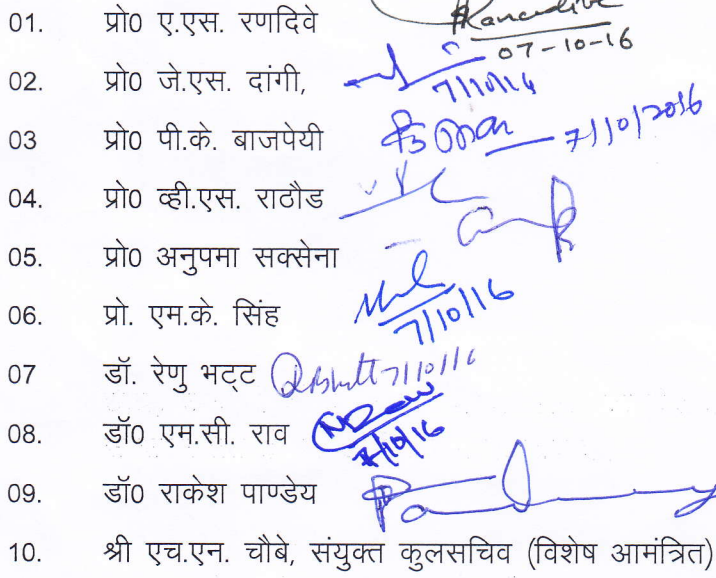 01. प्रो0 ए.एस. रणदिवे Ranadive
07-10-16
02. प्रो0 जे.एस. दांगी,
7/10/16
03 प्रो0 पी.के. बाजपेयी 7/10/2016
04. प्रो0 व्ही.एस. राठौड
05. प्रो0 अनुपमा सक्सेना
06. प्रो. एम.के. सिंह
7/10/16
07 डॉ. रेणु भट्ट RBhatt 7/10/16
08. डॉ0 एम.सी. राव
7/10/16
09. डॉ0 राकेश पाण्डेय
10. श्री एच.एन. चौबे, संयुक्त कुलसचिव (विशेष आमंत्रित)